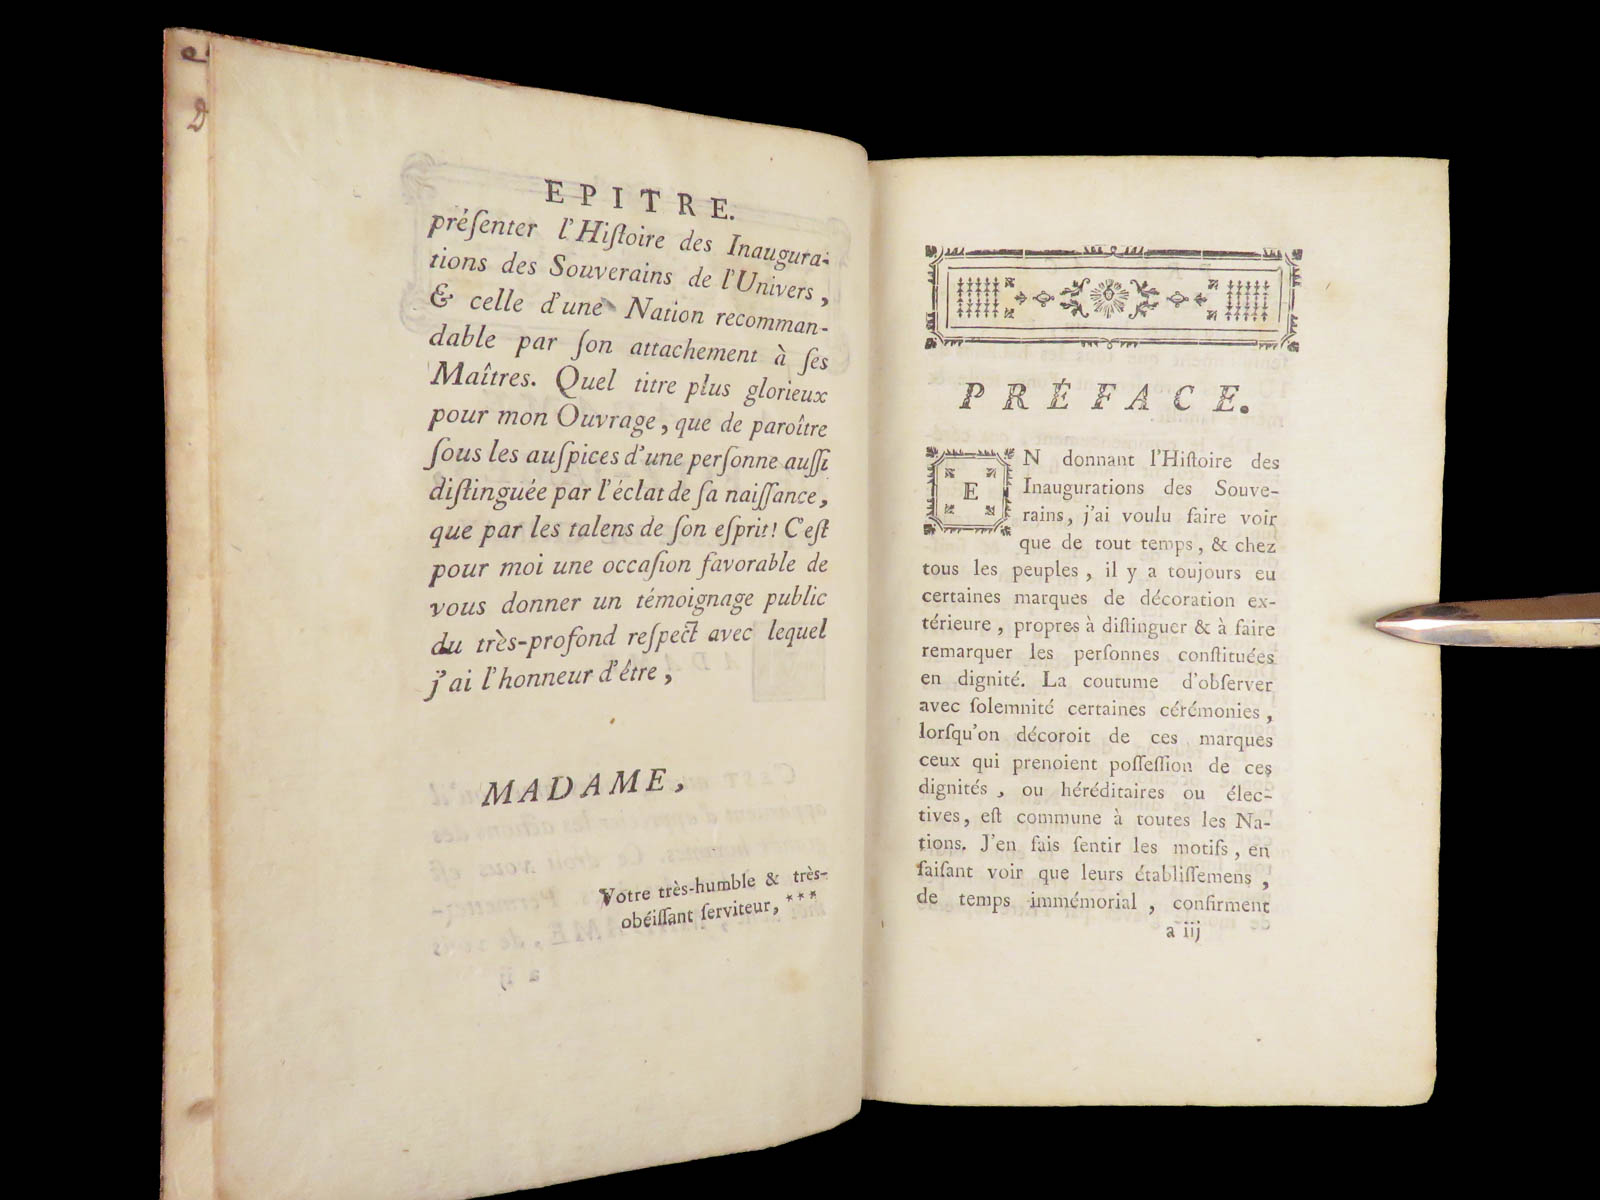 EPITRE.
préſenter l'Hiſtoire des Inaugura-
tions des Souverains de l'Univers,
& celle d'une Nation recomman-
dable par ſon attachement à ſes
Maîtres. Quel titre plus glorieux
pour mon Ouvrage, que de paroître
ſous les auſpices d'une perſonne auſſi
diſtinguée par l'éclat de ſa naiſſance,
que par les talens de ſon eſprit! C'eſt
pour moi une occaſion favorable de
vous donner un témoignage public
du très-profond reſpect avec lequel
j'ai l'honneur d'être,
MADAME,
Votre très-humble & très-
obéiſſant ſerviteur, ***
PRÉFACE.
EN donnant l'Hiſtoire des
Inaugurations des Souve-
rains, j'ai voulu faire voir
que de tout temps, & chez
tous les peuples, il y a toujours eu
certaines marques de décoration ex-
térieure, propres à diſtinguer & à faire
remarquer les perſonnes conſtituées
en dignité. La coutume d'obſerver
avec ſolemnité certaines cérémonies,
lorſqu'on décoroit de ces marques
ceux qui prenoient poſſeſſion de ces
dignités, ou héréditaires ou élec-
tives, eſt commune à toutes les Na-
tions. J'en fais ſentir les motifs, en
faiſant voir que leurs établiſſemens,
de temps immémorial, confirment
a iij